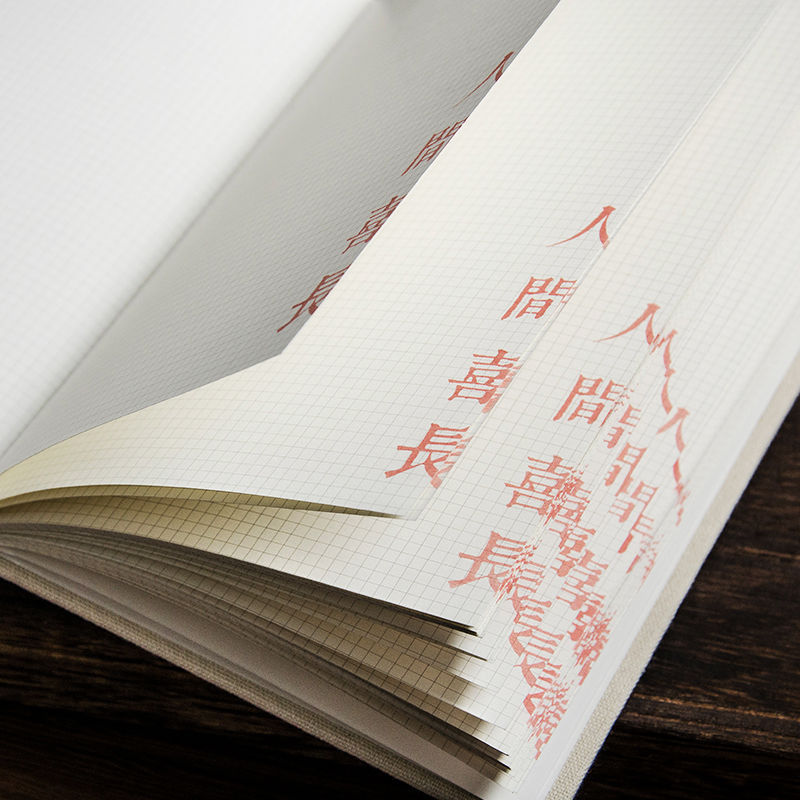 人間喜長
人間喜長
人間喜長